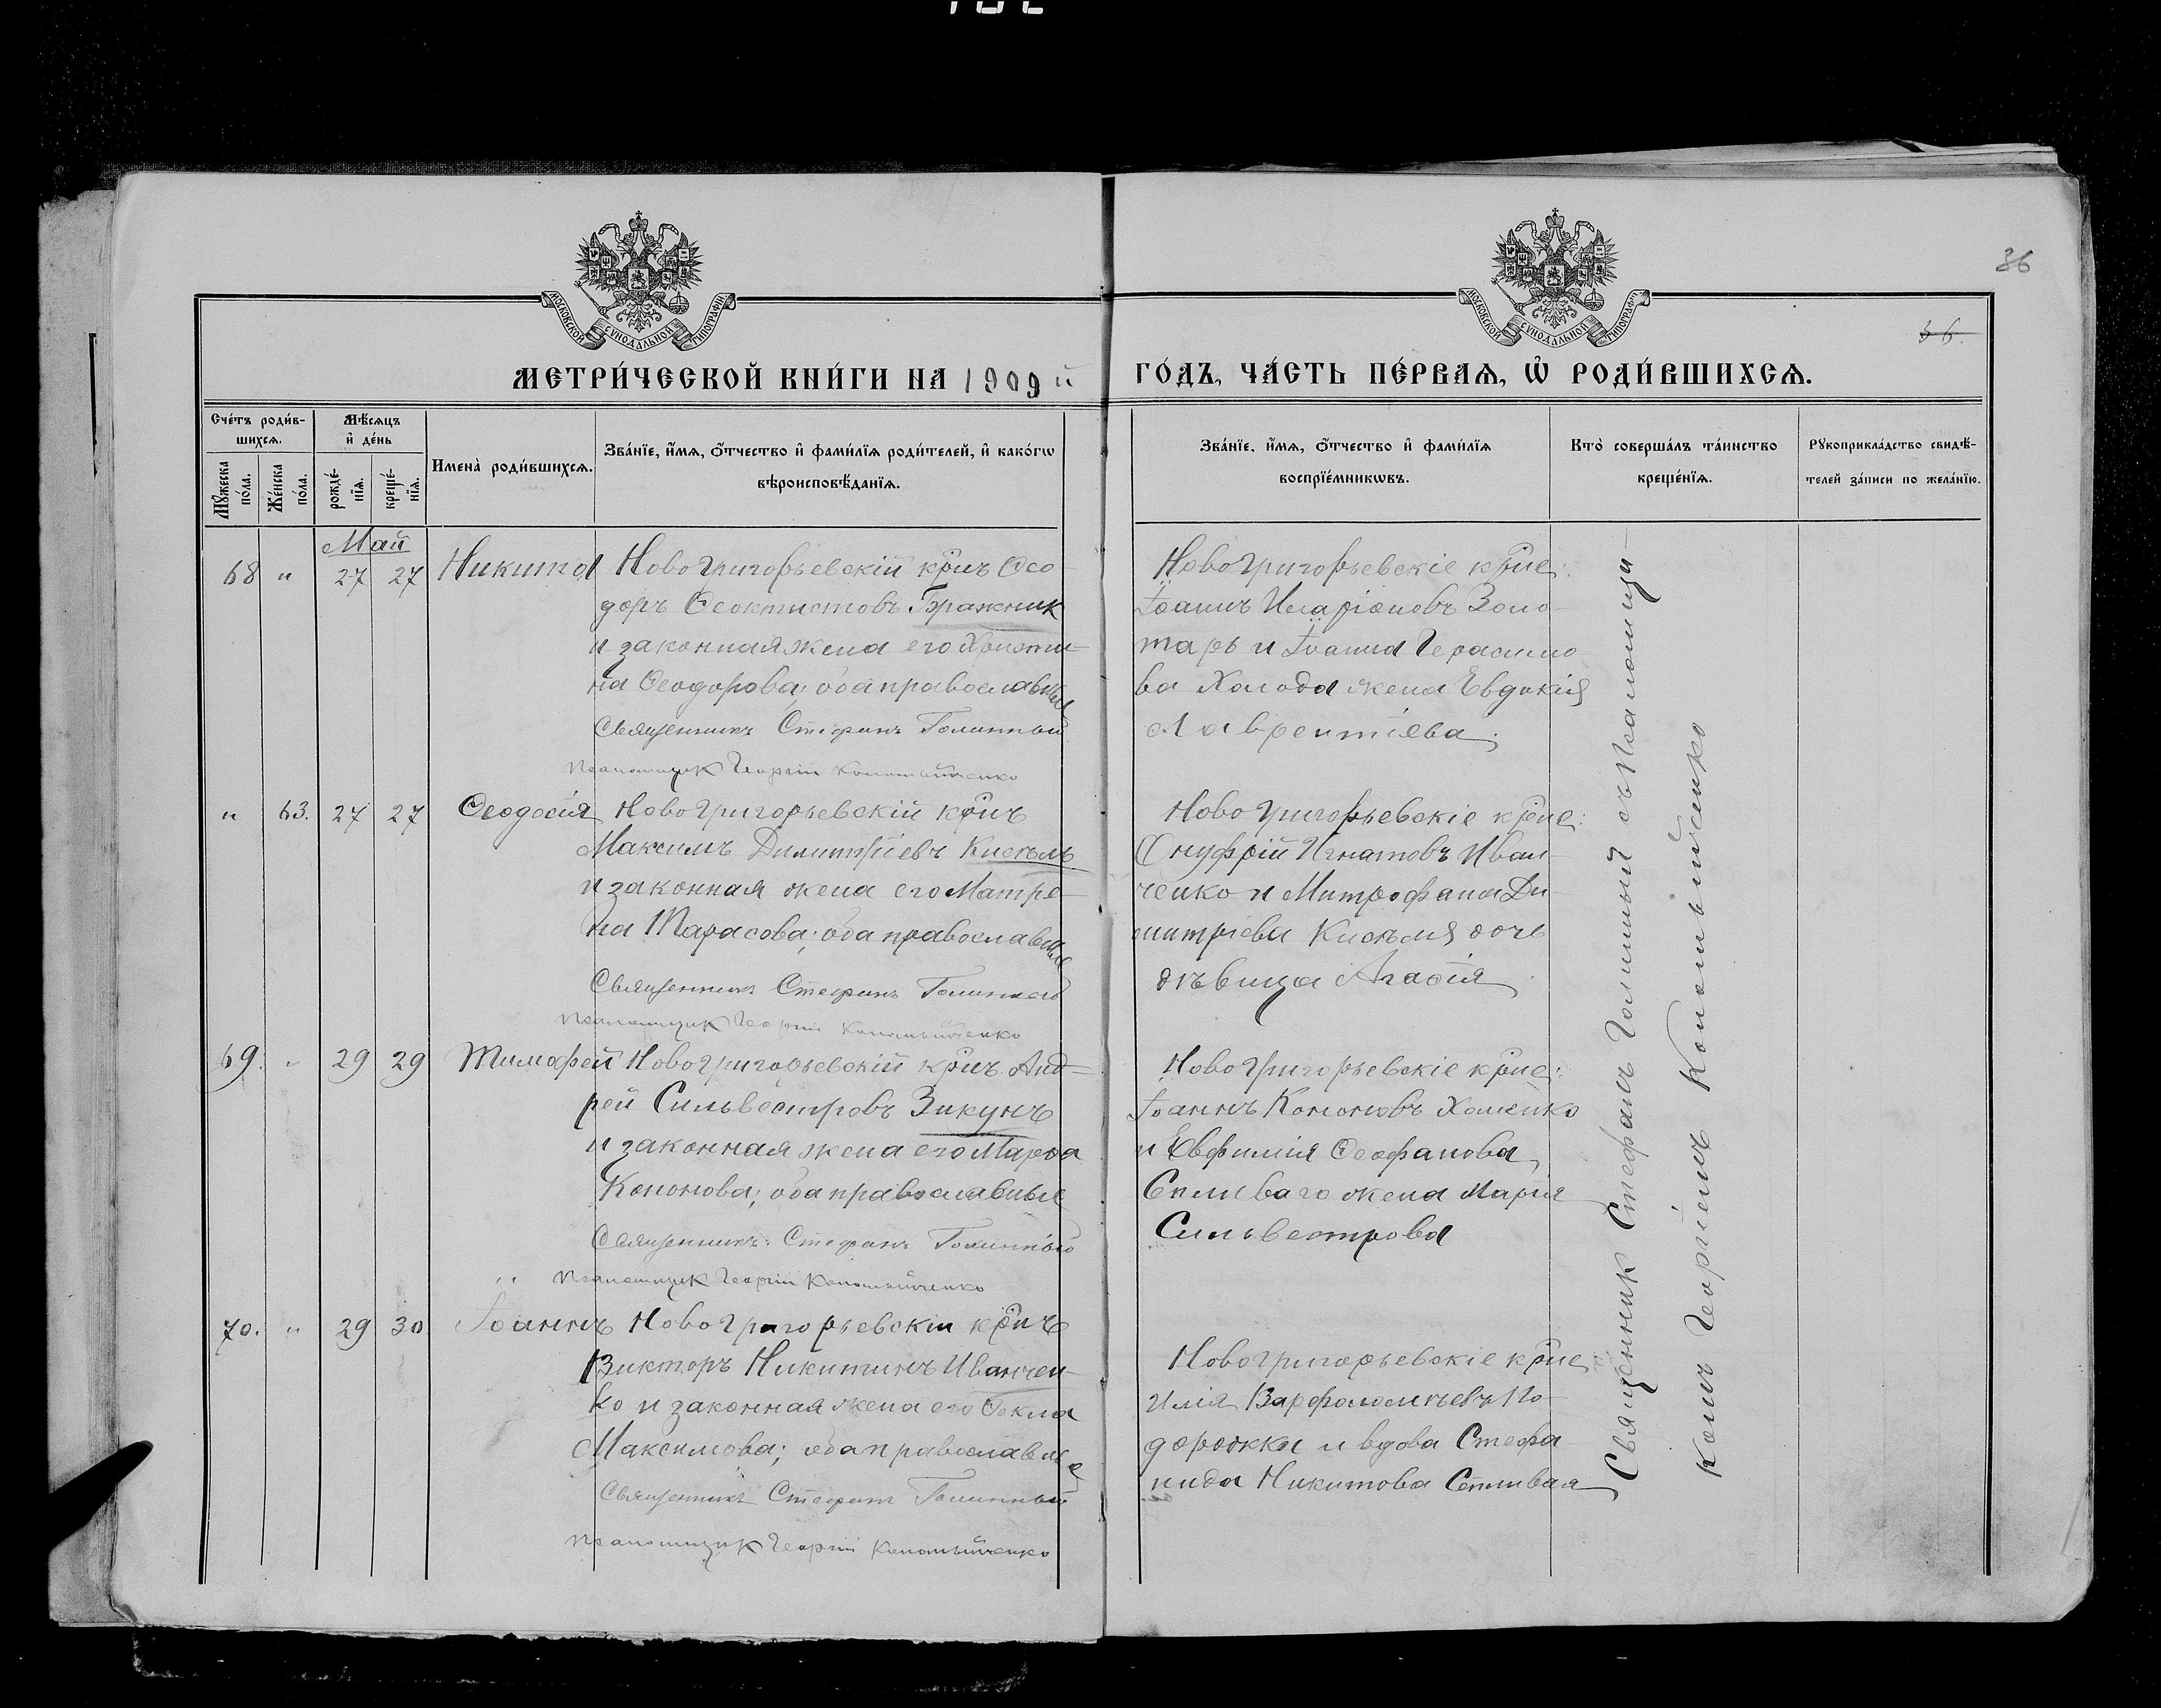 36
36.
МОСКОВСКОЙ СѴНОДАЛЬНОЙ ТИПОГРАФІИ
МОСКОВСКОЙ СѴНОДАЛЬНОЙ ТИПОГРАФІИ
МЕТРИ́ЧЕСКОЙ КНИ́ГИ НА 1909й ГО́ДЪ, ЧА́СТЬ ПЕ́РВАѦ, Ѡ҆ РОДИ́ВШИХСѦ.
Счéтъ роди́в-
шихсѧ.
Мѣ́сѧцъ
и҆ де́нь
Мꙋ́жеска
по́ла.
Же́нска
по́ла.
рожде́-
нїѧ.
креще́-
нїѧ.
Имена̀ роди́вшихсѧ.
Зва́нїе, и҆́мѧ, ѻ҆́тчество и҆ фами́лїѧ роди́телей, и҆ како́гѡ
вѣроисповѣ́данїѧ.
Зва́нїе, и҆́мѧ, ѻ҆́тчество и҆ фами́лїѧ
воспрїе́мникѡвъ.
Кто̀ соверша́лъ та́инство
креще́нїѧ.
Рꙋкоприкла́дство свидѣ́-
телей за́писи по жела́нїю.
Май
68 " 27 27 Никита Новогригорьевскій кр̃нъ Ѳео-
доръ Ѳеоктистовъ Бражник
и законная жена его Христи-
на Ѳеодорова; оба православные
Священникъ Стефанъ Голинный
Псаломщик Георгій Копотьитченко
Новогригорьевскіе кр̃не:
Іоаннъ Иларіоновъ Золо-
тарь и Іоанна Герасимо-
ва Холода жена Евдокія
Лаврентіева.
" 63. 27 27 Ѳеодосія Новогригорьевскій кр̃нъ
Максимъ Димитріевъ Кисѣль
и законная жена его Матре-
на Тарасова; оба православные
Священникъ Стефанъ Голинный
Псаломщик Георгій Копотьитченко
Новогригорьевскіе кр̃не:
Онуфрій Игнатовъ Иван-
ченко и Митрофана Ди-
митріева Кисѣля дочь
дѣвица Агафія
69. " 29 29 Тимофей Новогригорьевскій кр̃нъ Анд-
рей Сильвестровъ Зикунъ
и законная жена его Марѳа
Кононова; оба православные
Священникъ Стефанъ Голинный
Псаломщик Георгій Копотьитченко
Новогригорьевскіе кр̃не:
Іоаннъ Кононовъ Хоменко
и Евфимія Ѳеофанова
Сѣпливаго жена Марія
Сильвестрова
70. " 29 30 Іоаннъ Новогригорьевскій кр̃нъ
Викторъ Никитинъ Иванчен-
ко и законная жена его Ѳекла
Максимова; оба православные
Священникъ Стефанъ Голинный
Псаломщик Георгій Копотьитченко
Новогригорьевскіе кр̃не
Илія Варфоломѣевъ По-
дорожка и вдова Стефа-
нида Никитова Сѣпливая
Священник Стефанъ Голинный съ Псаломщи-
комъ Георгіемъ Копотьитченко